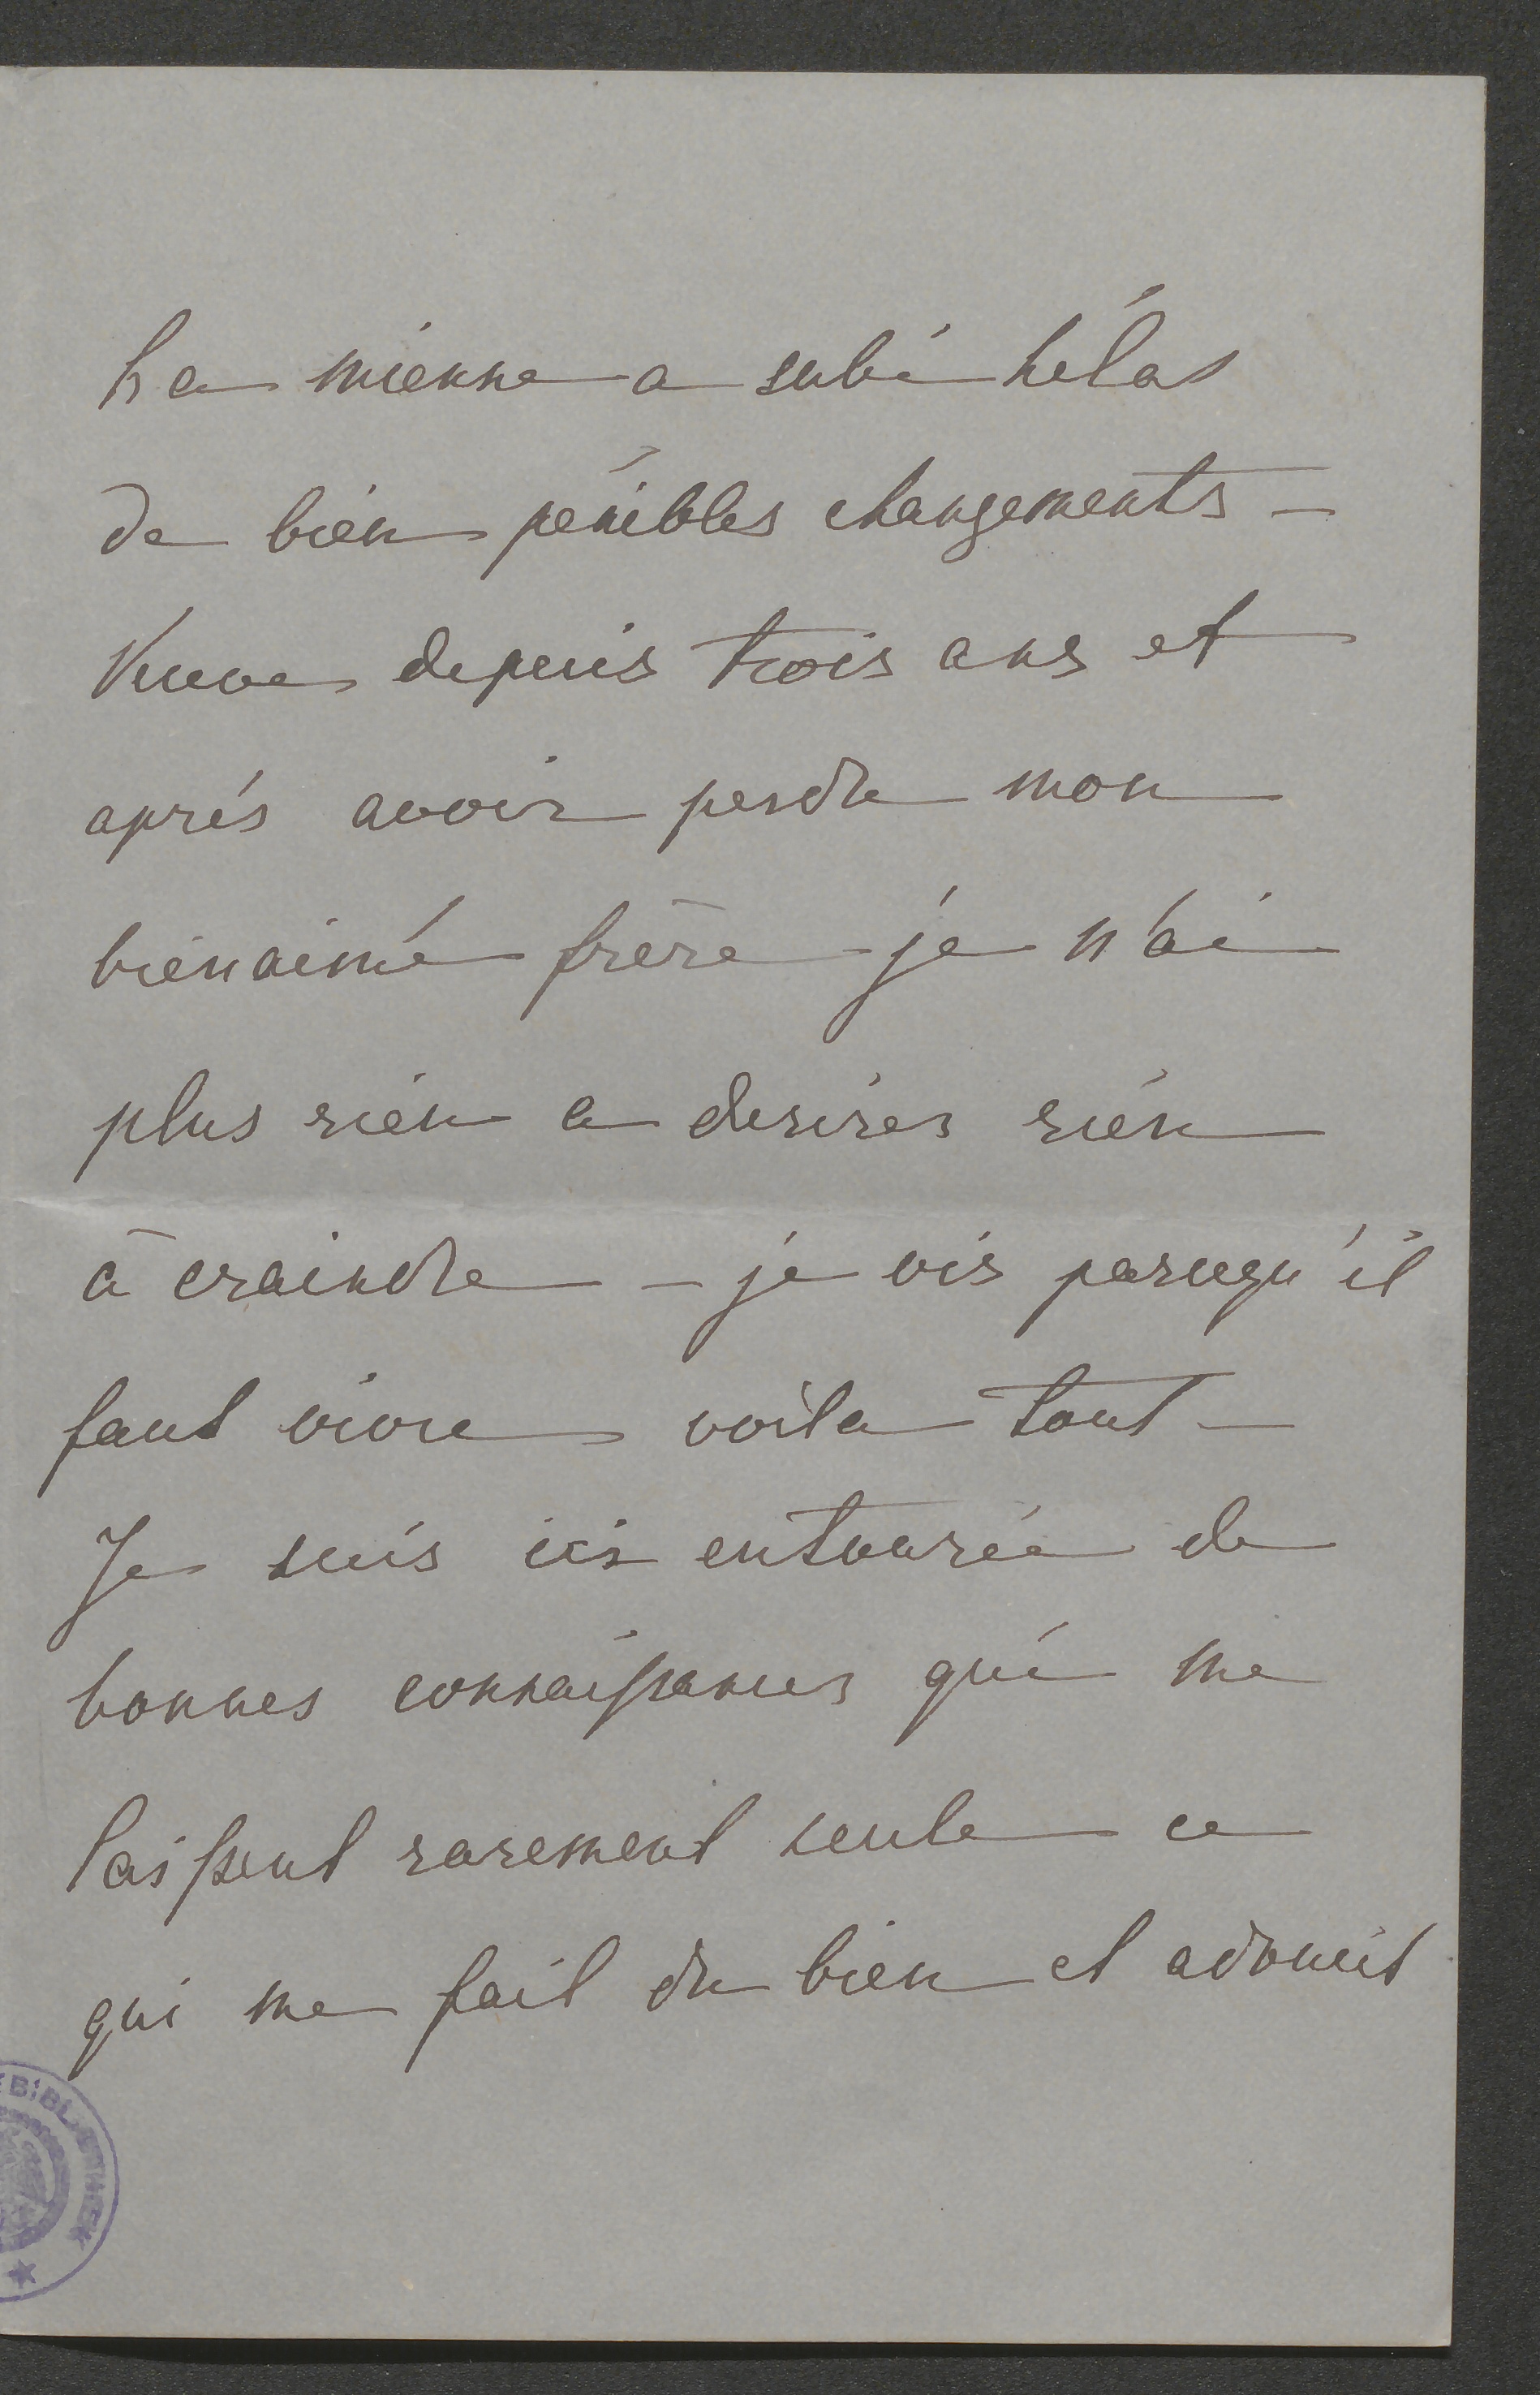 La mienne a subi hélas
de bien pénibles changements –
Veuve depuis trois ans et
aprés avoir perdu mon
bienaimé frère – je n'ai
plus rien a desirer rien
à craindre – je vis parcequ'il
faut vivre voila tout –
Je suis ici entourée de
bonnes connaissances qui me
laissent rarement seule ce
qui me fait du bien et adoucit
BIBLIOTHEK